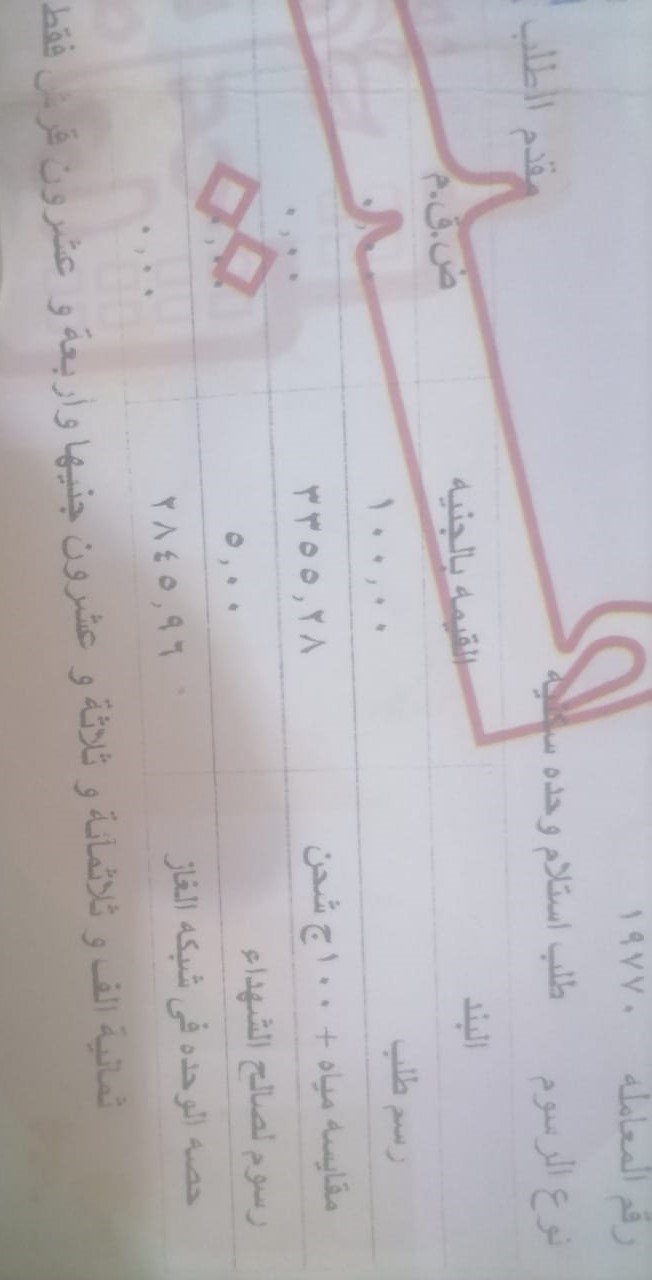 رقم المعامله ١٩٧٧٠
نوع الرسوم طلب استلام وحده سكنيه مقدم الطلب
البند القيمه بالجنيه ض.ق.م
رسم طلب ١٠٠,٠٠ ٠,٠٠
مقايسه مياه + ١٠٠ج شحن ٣٣٥٥,٢٨ ٠,٠٠
رسوم لصالح الشهداء ٥,٠٠ ٠,٠٠
حصه الوحده فى شبكه الغاز ٢٨٤٥,٩٦ ٠,٠٠
ثمانية الف و ثلاثمائة و ثلاثة و عشرون جنيها واربعة و عشرون قرش فقط